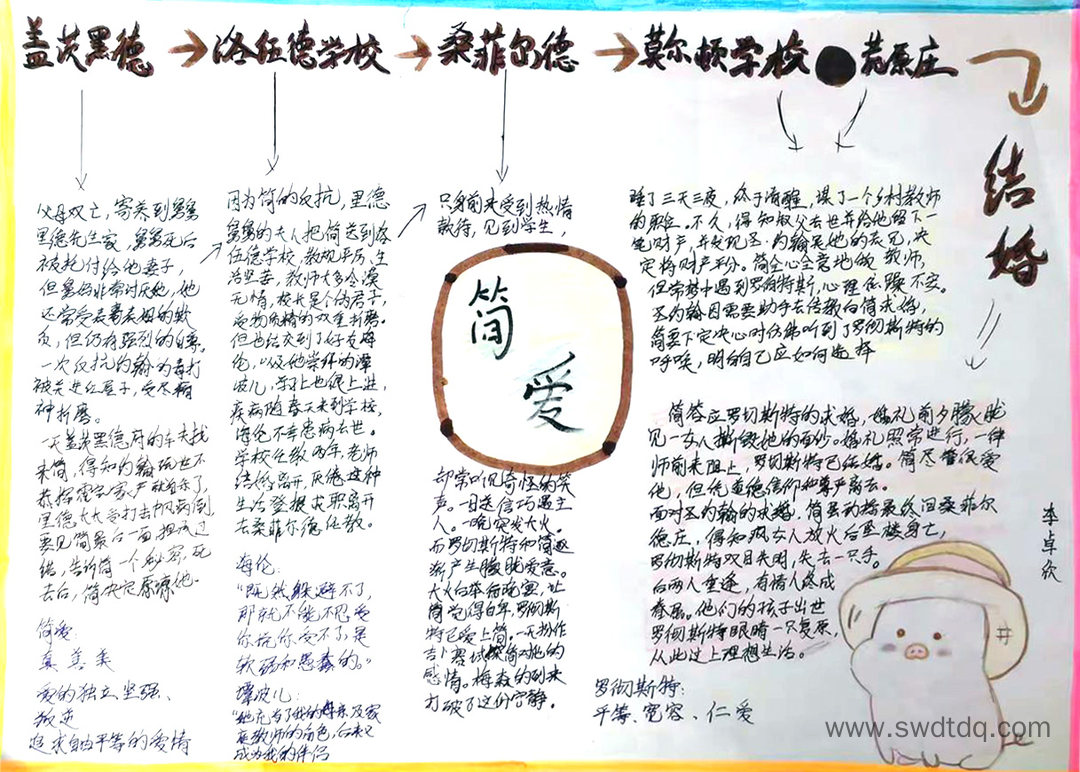 盖茨黑德 → 洛伍德学校 → 桑菲尔德 → 莫尔顿学校 ● 荒原庄
结婚
父母双亡，寄养到舅舅
里德先生家，舅舅死后
被托付给他妻子，
但舅妈非常讨厌她，他
还常受表哥表姐的欺
负，但仍有强烈的自尊。
一次反抗约翰的毒打
被关进红屋子，受尽精
神折磨。
一天盖茨黑德府的车夫找
来简，得知约翰
里德太太受打击中风病倒，
要见简最后一面
结，告诉简一个秘密，死
去后，简决定原谅她.
简爱：
真 善 美
爱的独立、坚强、
叛逆
追求自由平等的爱情
因为简的反抗，里德
舅舅的夫人把简送到洛
伍德学校，教规严厉，生
活坚苦，教师大多冷漠
无情，校长是个伪君子，
受物质精的双重折磨.
但也结交到了好友海
伦，以及她崇拜的潭
波儿，学习上也很上进，
疾病随春天来到学校，
海伦不幸患病去世。
学校任教两年，老师
结婚离开，厌倦这种
生活登报求职离开
去桑菲尔德任教。
海伦：
“既然躲避不了，
那就不能不忍受
你说你受不了是
软弱和愚蠢的。”
潭波儿：
成为我的伴侣
只身前来受到热情
款待，见到学生，
简
爱
却常听见奇怪的笑
声。一日送信巧遇主
人。一晚突发大火，
而罗切斯特和简逐
渐产生朦胧爱意。
大火后举行晚宴，让
简觉得自卑，罗彻斯
特已爱上简。一天扮作
吉卜赛试探简对他的
感情。梅森的到来
打破了这份宁静.
睡了三天三夜，终于清醒，谋了一个乡村教师
的职位。不久，得知叔父去世并给他留下一
笔财产，并发现圣·约翰是他的表兄，决
定将财产平分。简全心全意地做 教师，
但常梦中遇到罗彻特斯，心理焦躁不安。
圣约翰因需要助手去传教向简求婚，
简要下定决心时仿佛听到了罗彻斯特的
呼唤，明白自己应如何选择
简答应罗切斯特的求婚，婚礼前夕朦胧
见一女人撕毁她的面纱。婚礼照常进行，一律
师前来阻止，罗切斯特已结婚。简尽管很爱
他，但凭道德信仰和尊严离去。
面对圣约翰的求婚，简爱动摇最终回桑菲尔
德庄，得知疯女人放火后坠楼身亡，
罗彻斯特双目失明，失去一只手。
后两人重逢，有情人终成
眷属。他们的孩子出世
罗彻斯特眼睛一只复原，
从此过上理想生活。
罗彻斯特：
平等、宽容、仁爱
李卓欣
www.swdtdq.com